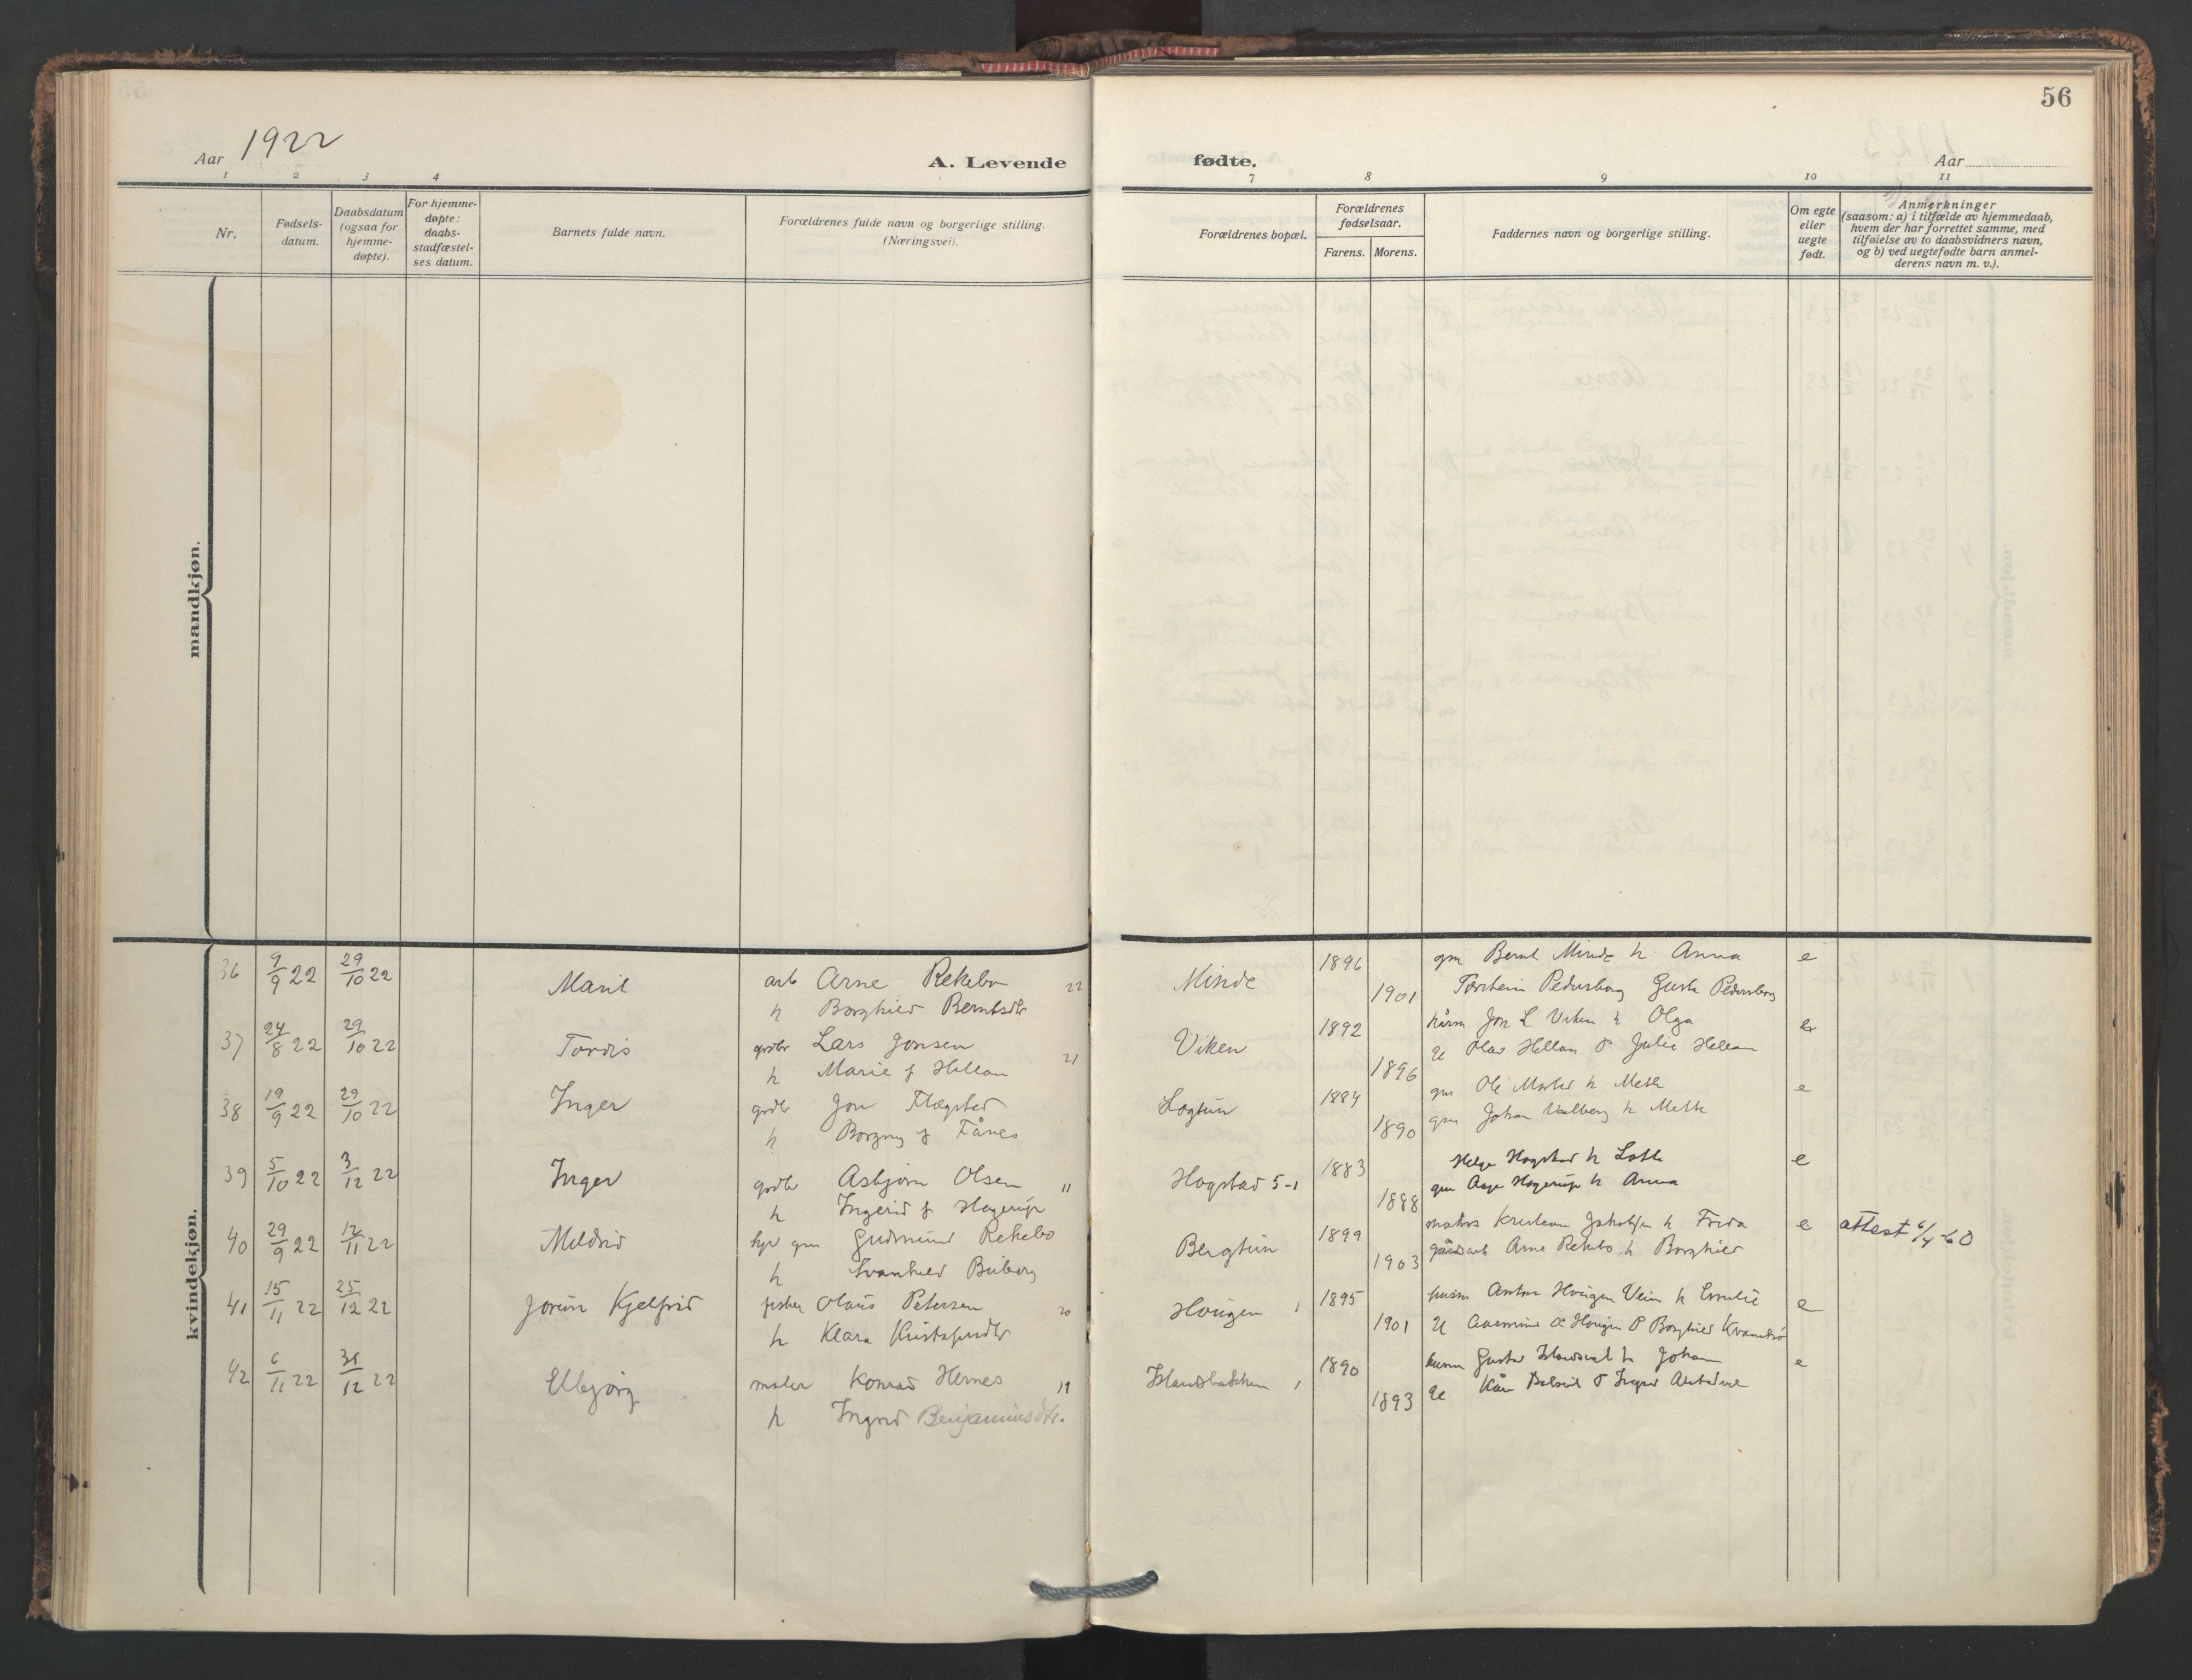 56
Aar 1922
A. Levende
fødte.
Aar
1 2 3 4 7 8 9 10 11
Nr.
Fødsels-
datum.
Daabsdatum
(ogsaa for
hjemme-
døpte).
For hjemme-
døpte:
daabs-
stadfæstel-
ses datum.
Barnets fulde navn.
Forældrenes fulde navn og borgerlige stilling.
(Næringsvei).
Forældrenes bopæl.
Forældrenes
fødselsaar.
Farens. Morens.
Faddernes navn og borgerlige stilling.
Om egte
eller
uegte
født.
Anmerkninger
(saasom: a) i tilfælde av hjemmedaab,
hvem der har forrettet samme, med
tilføielse av to daabsvidners navn,
og b) ved uegtefødte barn anmel-
derens navn m. v.).
mandkjøn.
kvindekjøn.
36 9/9 22 29/10 22 Marit arb Arne Rekebo 22 Minde 1896 gm Bernt Minde h Anna e
h Borghild Berntsdtr 1901 Torstein Pedersborg Gusta Pedersborg
37 24/8 22 29/10 22 Tordis grdbr Lars Jonsen 21 Viken 1892 Jon L Viken h Olga
h Marie f Hellan 1896 U Olav Hellan P Julie Hellan
38 19/9 22 29/10 22 Inger grdbr Jon Flægstad Logtun 1884 gm Ole h Meth e
h Borgny f Fånes 1890 gm Johan Valberg h Mette
39 5/10 22 3/12 22 Inger grdbr Asbjørn Olsen 11 Hogstad 5-1 1883 Helge Hogstad h Lotte e
h Ingerid f Hagerup 1888 gm Aage Hagerup h Anna
40 29/9 22 12/11 22 Meldrid gm Gudmund Rekebo Bergtun 1899 h Frida e attest 6/4-60
h Svanhild Buberg 1903 gårdsarb Arne Rekebo h Borghild
41 15/11 22 25/12 22 Jorun Kjelfrid fisker Olaus Petersen 20 Hougen 1 1895 Anton Hougen h Emilie e
h Klara 1901 U Hougen P Borghild
42 6/11 22 31/12 22 Elbjørg maler Konrad Hernes 19 1 1890 Gustav h Johan e
h Ingrid Benjaminsdtr. 1893 U Kåre P Inger